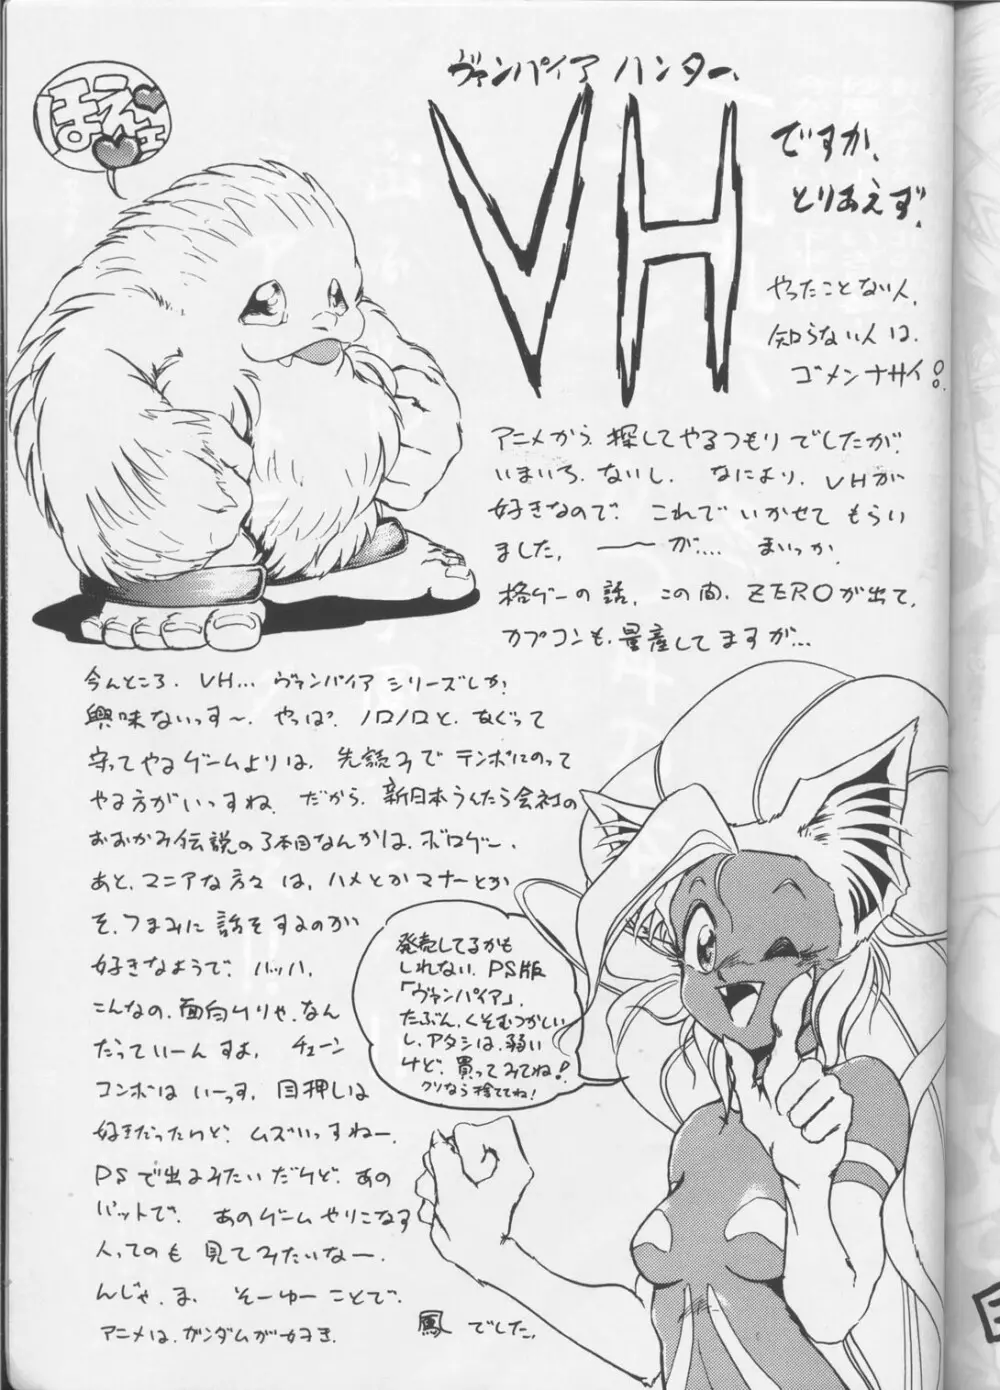 ほえェ
ヴァンパイア ハンター、
VH
ですか、
とりあえず、
やったことない人、
知らない人は、
ゴメンナサイ!。
アニメから、探してやるつもりでしたが、
いまいち、ないし、なにより、VHが
好きなので、これでいかせてもらい
ました。――が.... まいっか
格ゲーの話、この間、ZEROが出て、
カプコンも、量産してますが...
今んところ、VH... ヴァンパイアシリーズしか、
興味ないっす〜。やっぱ、ノロノロと、なぐって
守ってやるゲームよりは、先読みでテンポにのって
やる方がいっすね。だから、新日本うんたら会社の
おおかみ伝説の3本目なんかは、ボロゲー、
あと、マニアな方々は、ハメとかマナーとか
を、つまみに話をするのが
好きなようで、バッハ、
こんなの、面白けりゃ、なん
だっていーんすよ。チェーン
コンボはいーっす。目押しは
好きだったけど、ムズいっすねー、
PSで出るみたいだけど、あの
パットで、あのゲームやりこなす
人ってのも見てみたいなー、
んじゃ、ま、そーゆーことで、
アニメは、ガンダムが好き、
鳳 でした。
発売してるかも
しれない、PS版
「ヴァンパイア」、
たぶん、くそむつかしい
し、アタシは、弱い
けど、買ってみてね!
クソなら捨ててね!